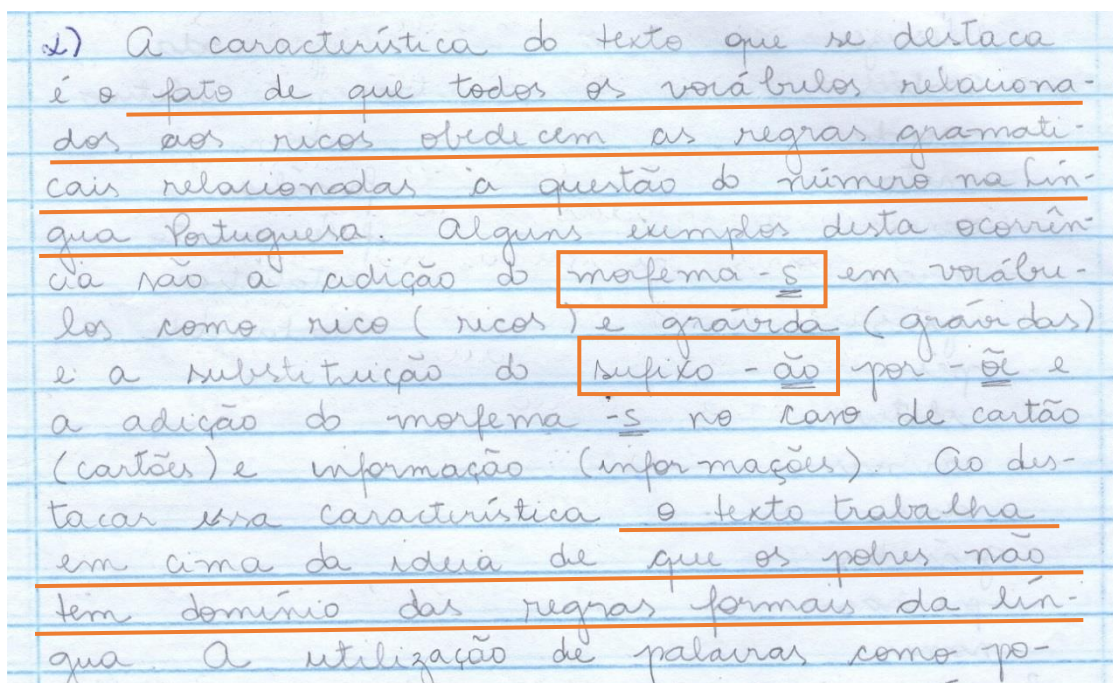 2) A característica do texto que se destaca
é o fato de que todos os vocábulos relaciona-
dos aos ricos obedecem as regras gramati-
cais relacionadas à questão do número na Lín-
gua Portuguesa. Alguns exemplos desta ocorrên-
cia são a adição do morfema -s em vocábu-
los como rico (ricos) e grávida (grávidas)
e a substituição do sufixo -ão por -õe e
a adição do morfema -s no caso de cartão
(cartões) e informação (informações). Ao des-
tacar essa característica o texto trabalha
em cima da ideia de que os pobres não
tem domínio das regras formais da lín-
gua. A utilização de palavras como po-